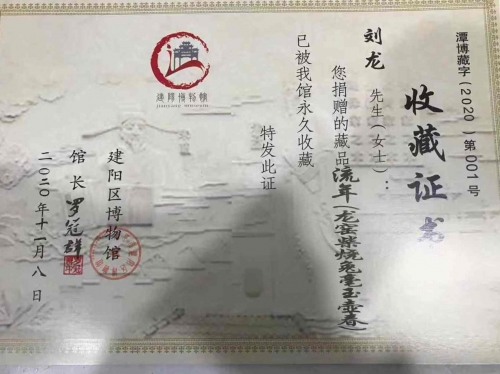 潭博藏字（2020）第001号
收藏证书
刘龙 先生（女士）：
您捐赠的藏品流年（龙窑柴烧兔毫玉壶春）
已被我馆永久收藏
特发此证
建阳区博物馆
馆长 罗冠群
二〇二〇年十一月八日
建阳博物馆
jianyang museum